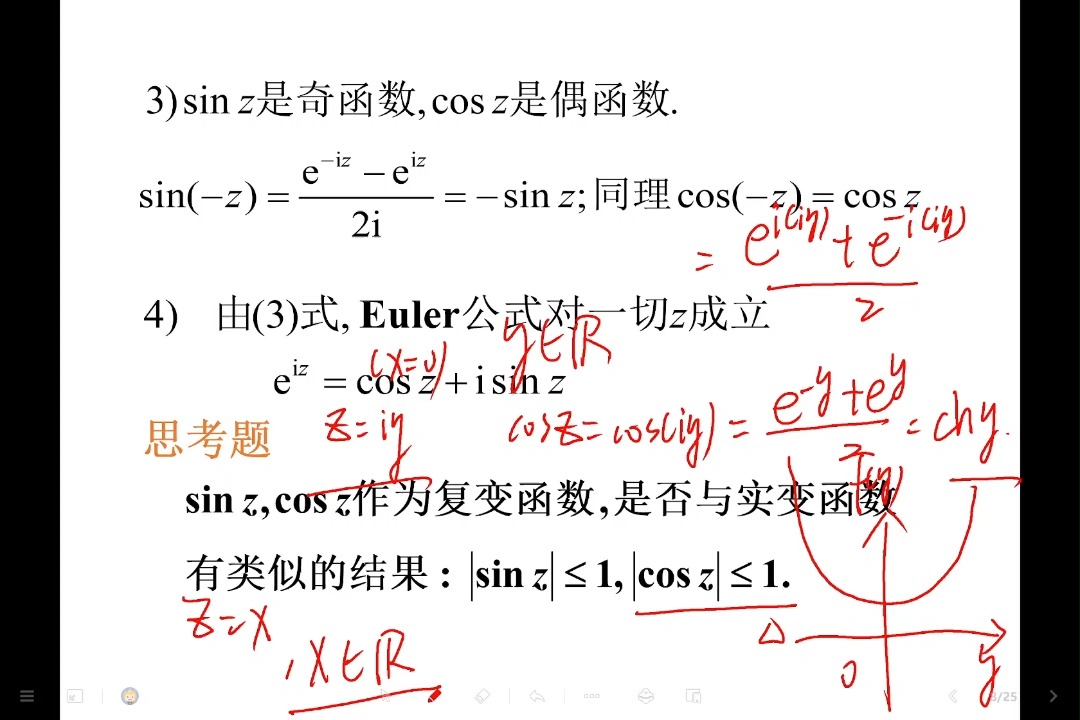 3) sin z是奇函数, cos z是偶函数.
sin(−z) = (e^{−iz} − e^{iz}) / 2i = −sin z; 同理cos(−z) = cos z
= (e^{i(iy)} + e^{-i(iy)}) / 2
4) 由(3)式, Euler公式对一切z成立
(x=0) y∈ℝ
e^{iz} = cos z + i sin z
思考题 z=iy cosz=cos(iy) = (e^{-y}+e^{y}) / 2 = chy.
sin z, cos z作为复变函数, 是否与实变函数
有类似的结果: |sin z| ≤ 1, |cos z| ≤ 1.
z=x
, x∈ℝ
0 y
/25